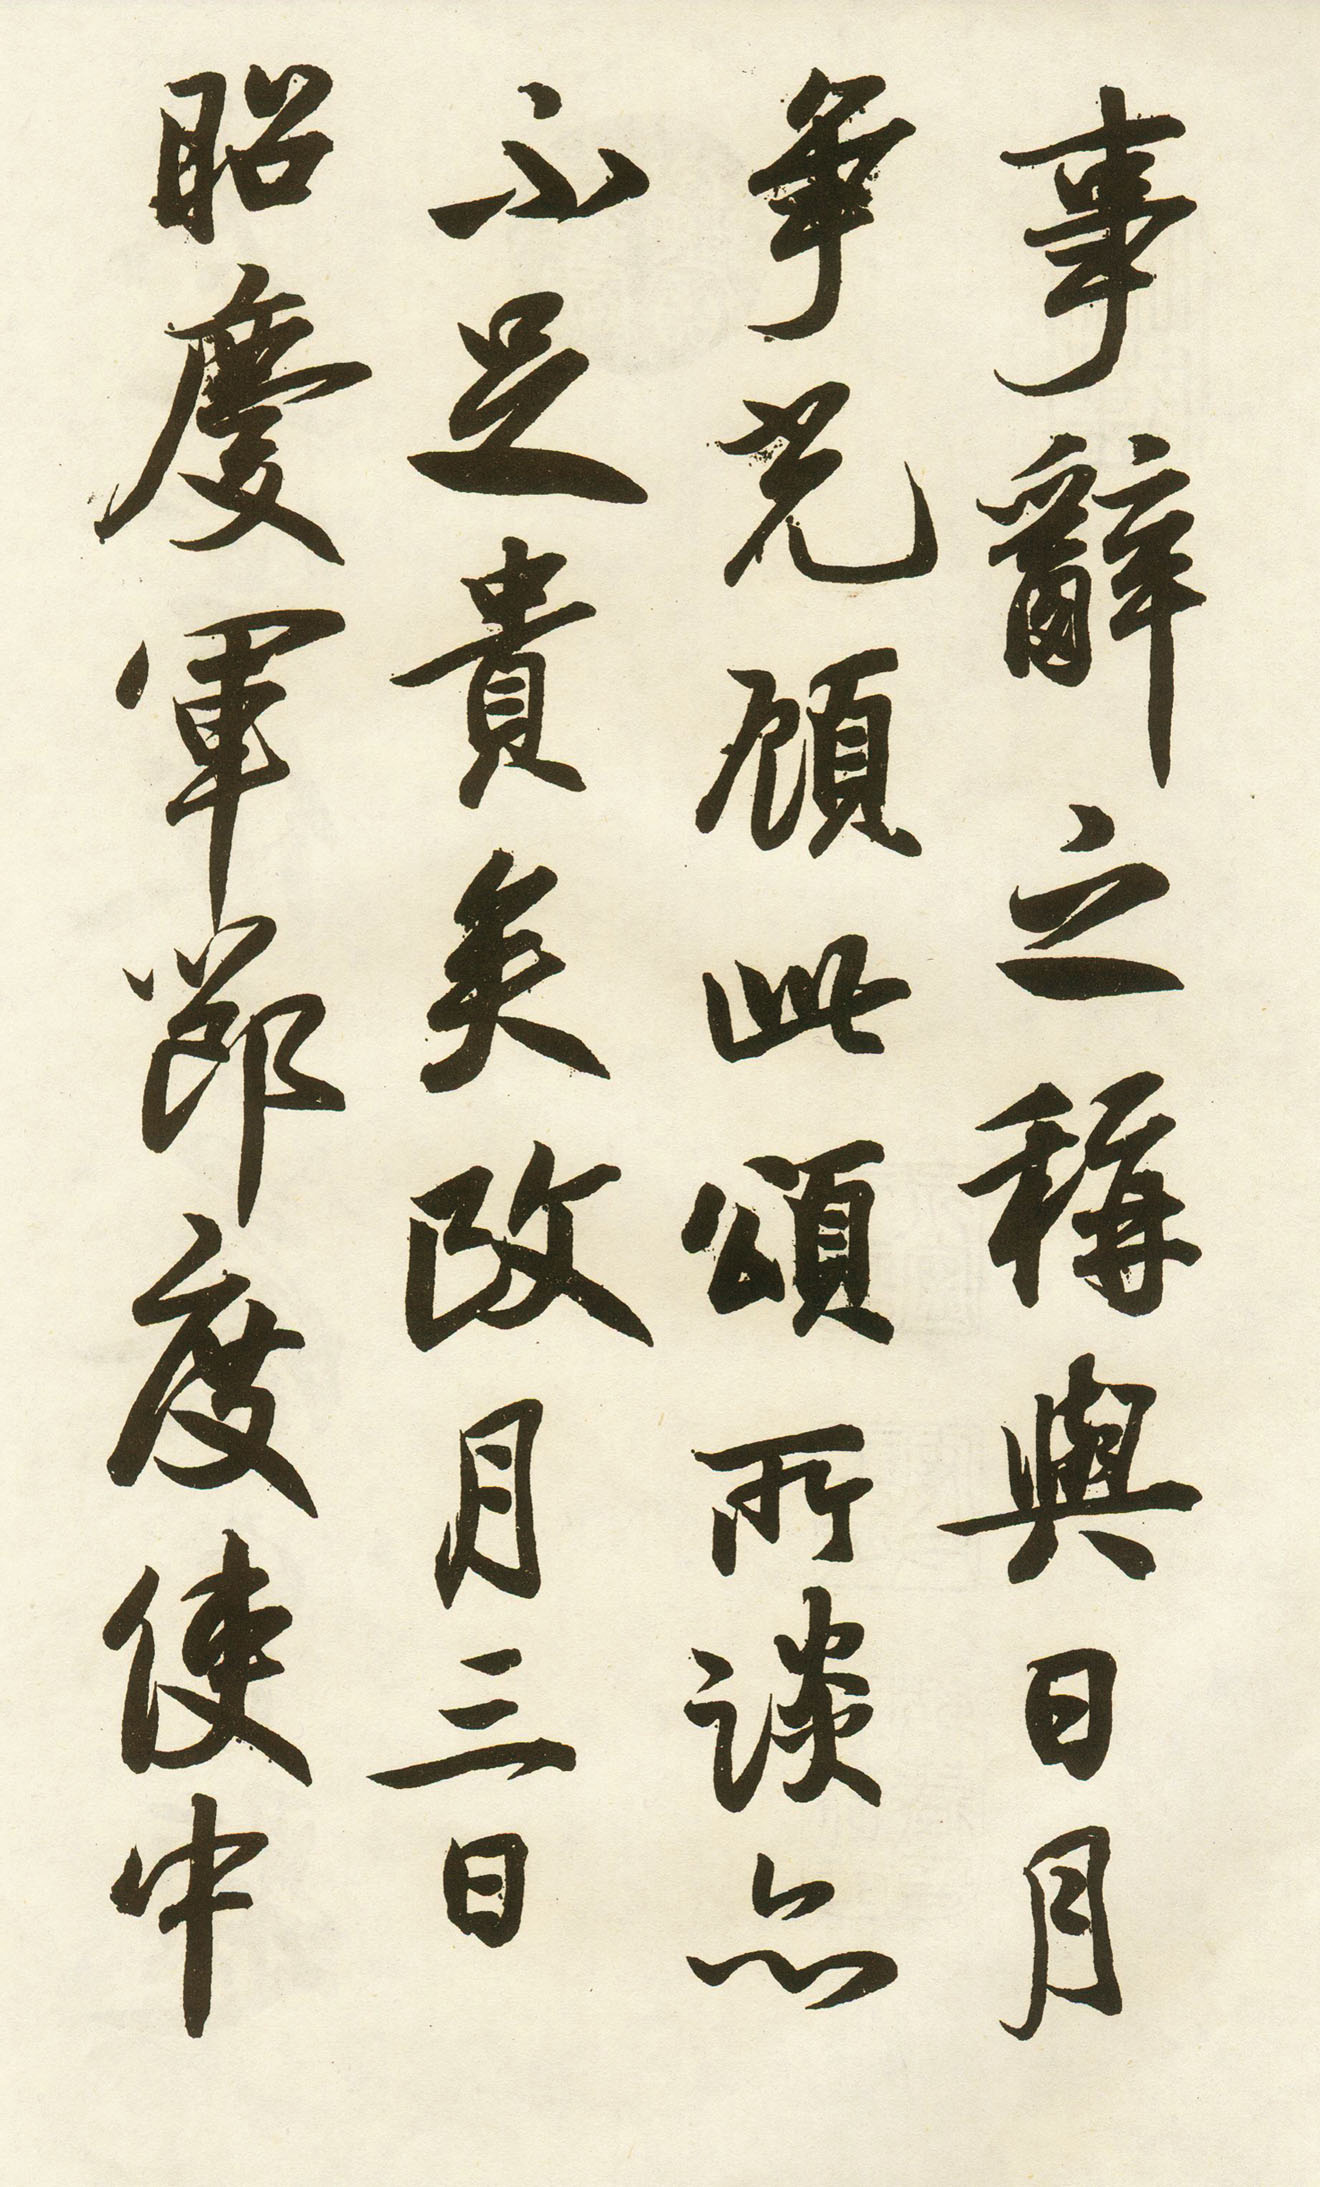 事辭之稱與日月
爭光顧此頌所談亦
不足貴矣政月三日
昭慶軍節度使中